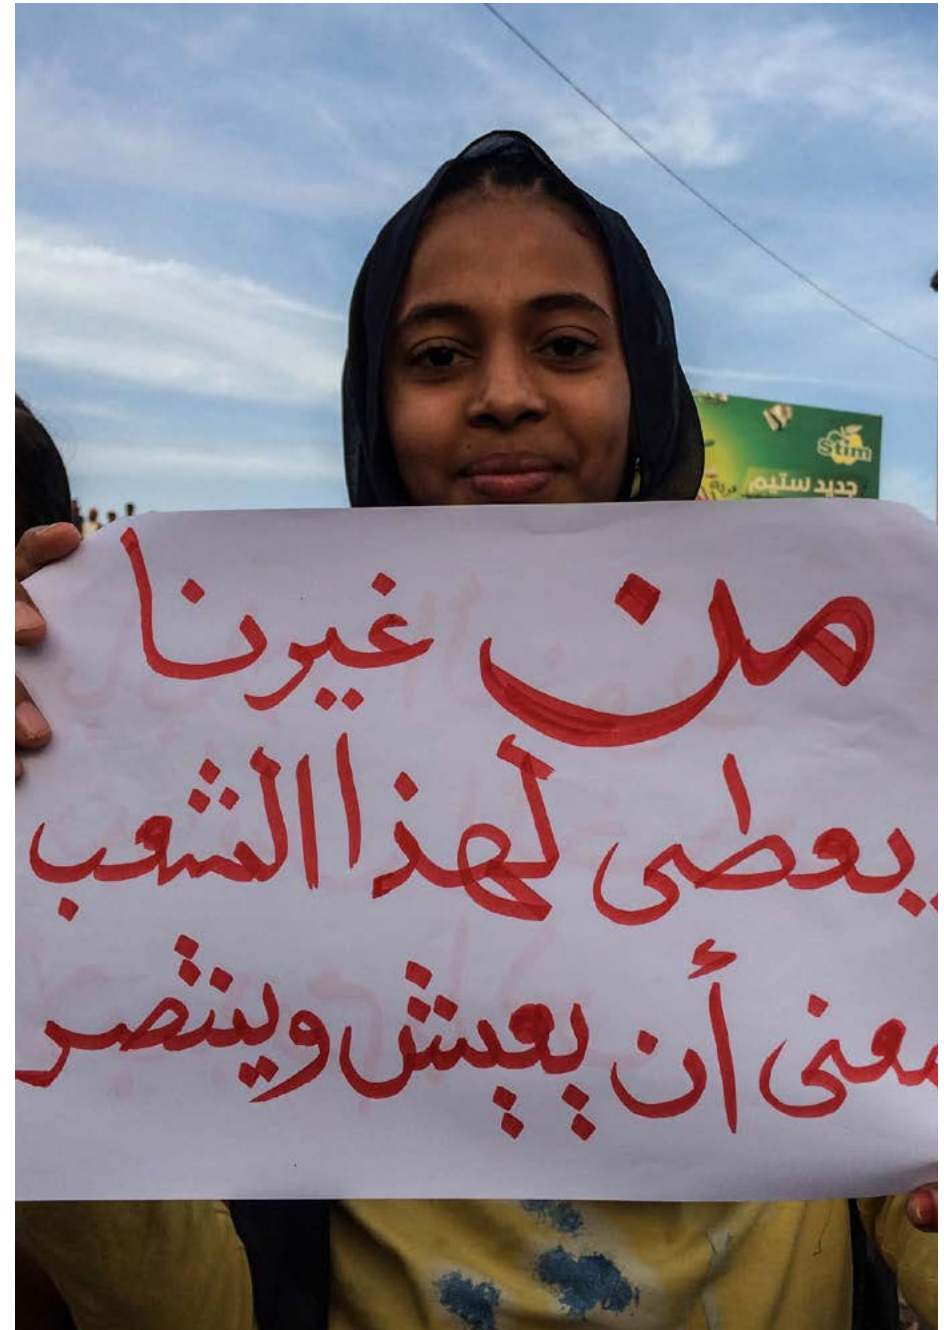 Stim
جديد ستيم
من غيرنا
يعطى لهذا الشعب
معنى أن يعيش وينتصر